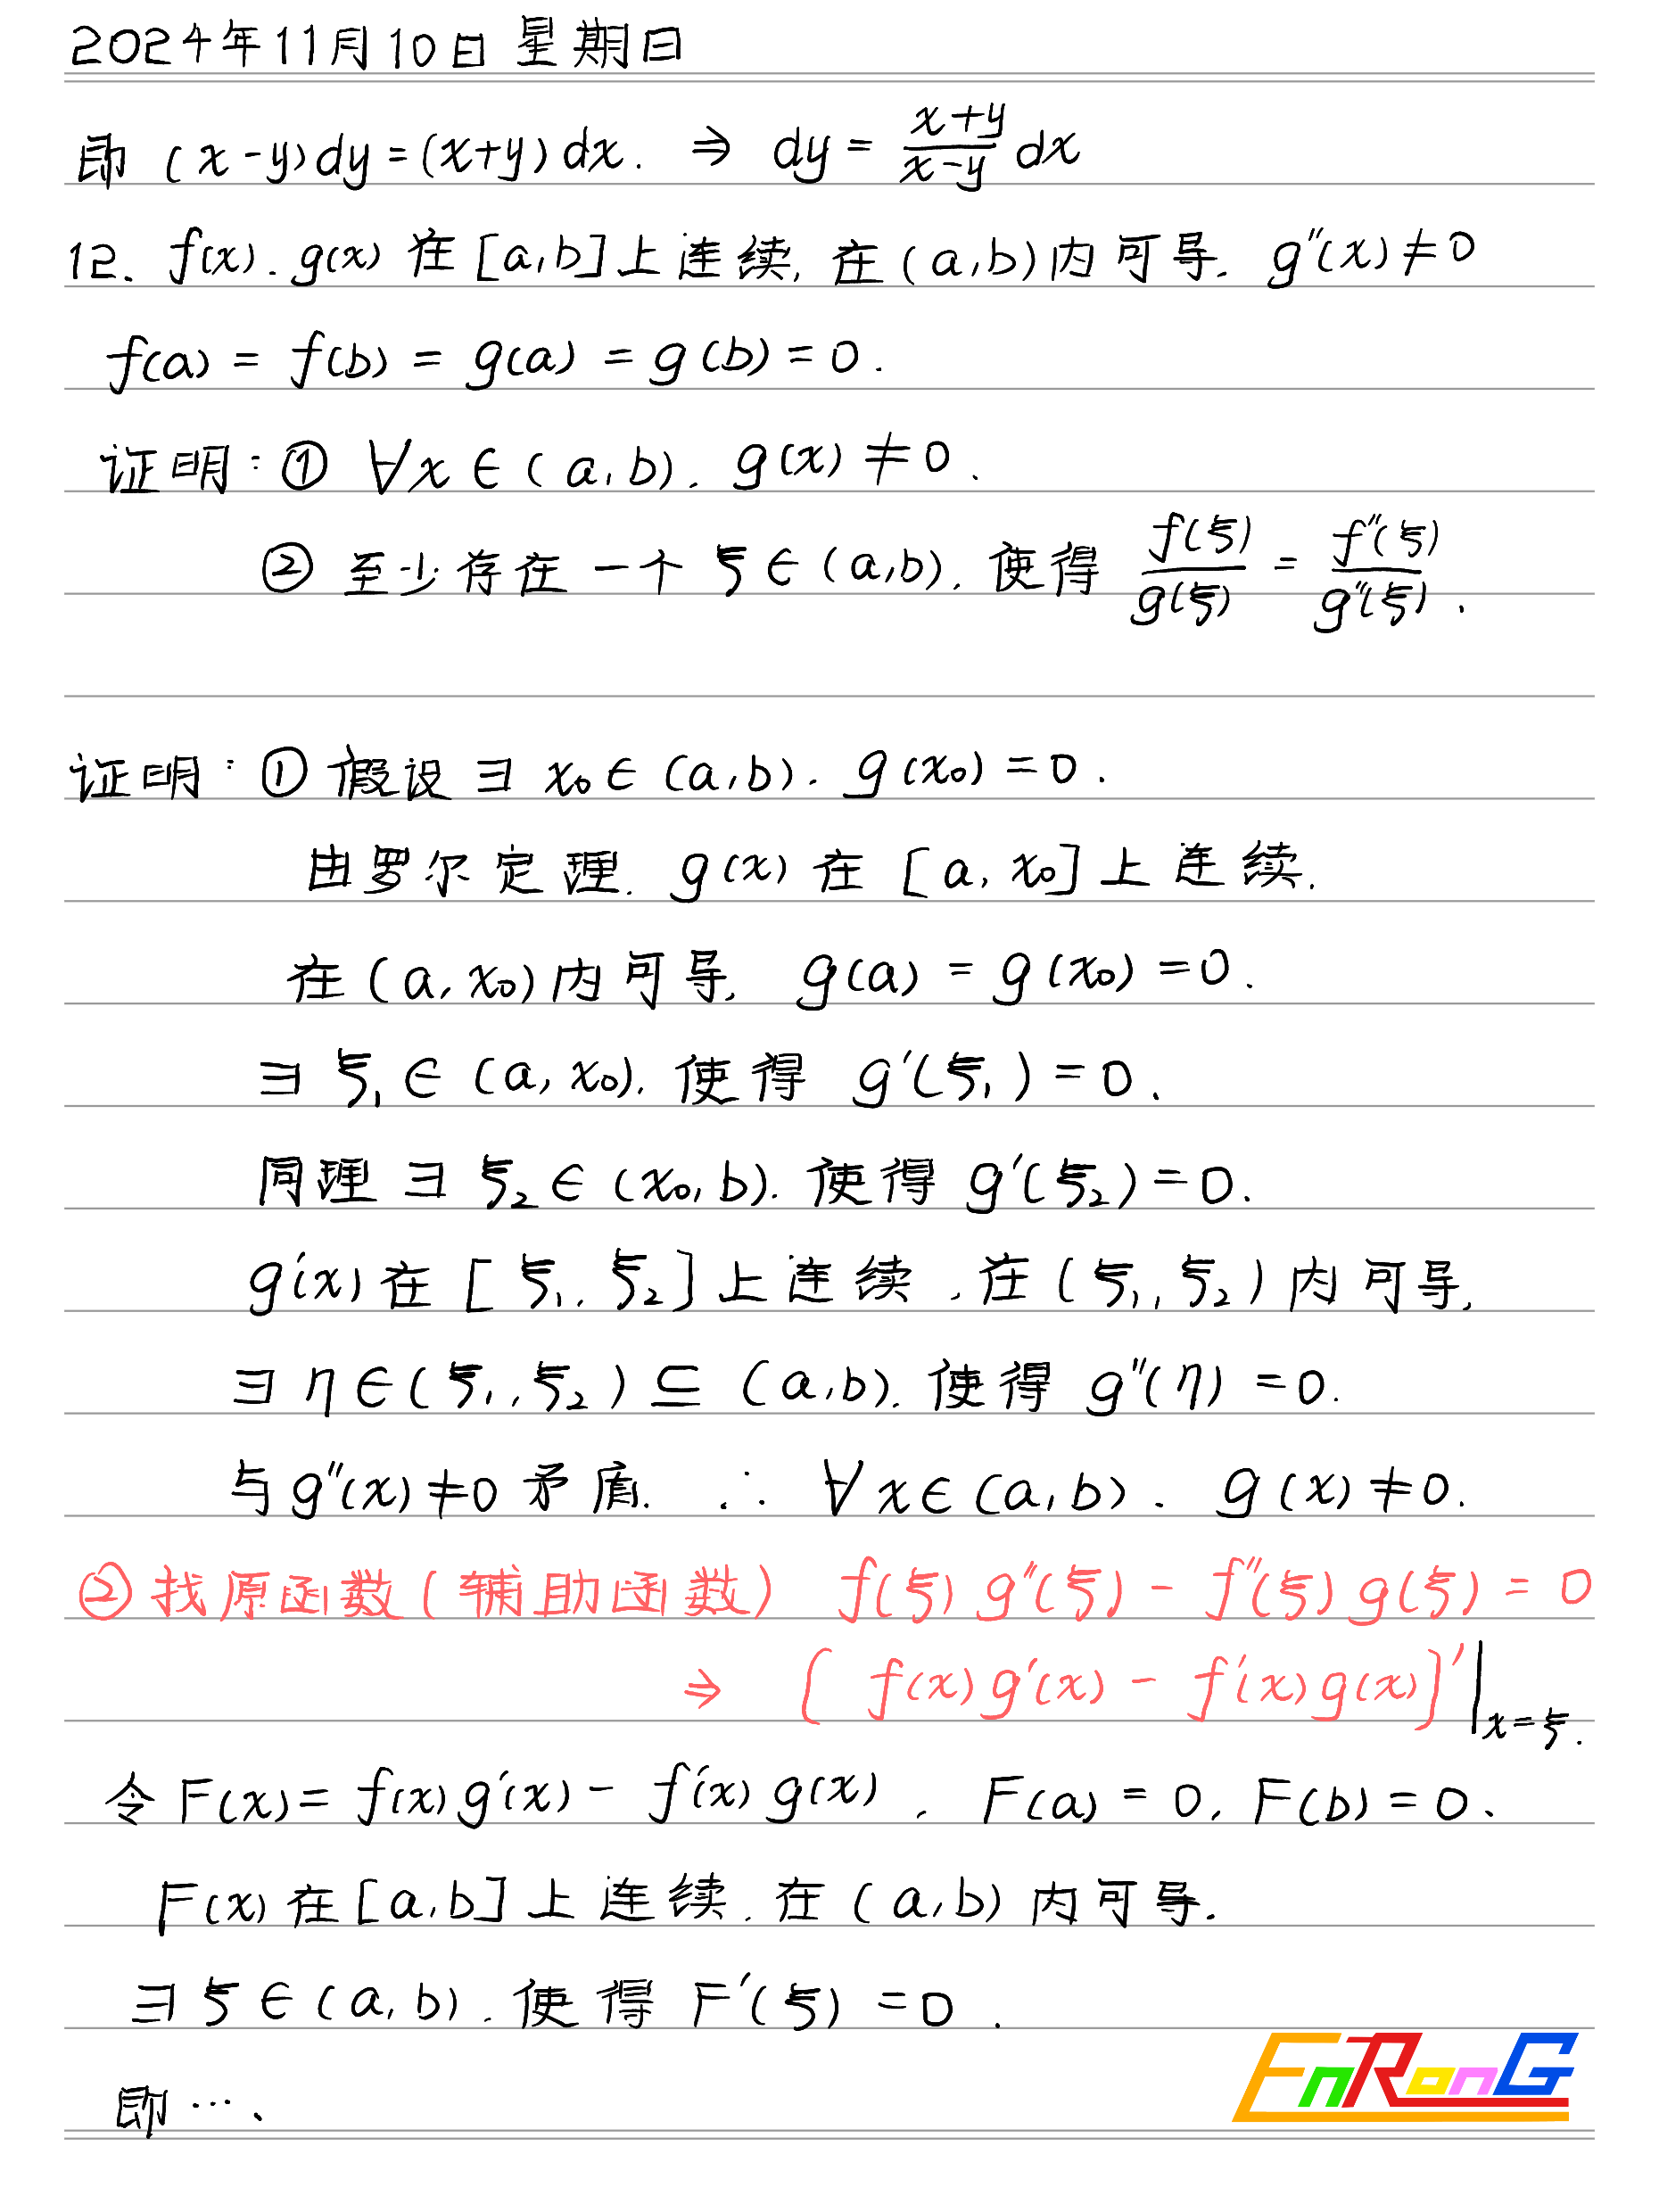 2024年11月10日 星期日
即 (x-y)dy=(x+y)dx. ⇒ dy = \frac{x+y}{x-y} dx
12. f(x). g(x) 在 [a,b]上连续, 在(a,b)内可导. g''(x)≠0
f(a) = f(b) = g(a) = g(b) = 0.
证明: ① ∀x ∈ (a,b). g(x) ≠ 0.
② 至少存在一个 ξ ∈ (a,b). 使得 \frac{f(ξ)}{g(ξ)} = \frac{f''(ξ)}{g''(ξ)}.
证明: ① 假设 ∃ x₀ ∈ (a,b). g(x₀) = 0.
由罗尔定理. g(x) 在 [a, x₀] 上连续.
在 (a, x₀) 内可导. g(a) = g(x₀) = 0.
∃ ξ₁ ∈ (a, x₀). 使得 g'(ξ₁) = 0.
同理 ∃ ξ₂ ∈ (x₀, b). 使得 g'(ξ₂) = 0.
g'(x) 在 [ξ₁, ξ₂] 上连续, 在 (ξ₁, ξ₂) 内可导,
∃ η ∈ (ξ₁, ξ₂) ⊆ (a,b). 使得 g''(η) = 0.
与 g''(x) ≠ 0 矛盾. ∴ ∀ x ∈ (a,b). g(x) ≠ 0.
② 找原函数 (辅助函数) f(ξ) g''(ξ) - f''(ξ) g(ξ) = 0
⇒ [ f(x) g'(x) - f'(x) g(x) ]' |x=ξ.
令 F(x) = f(x) g'(x) - f'(x) g(x). F(a) = 0, F(b) = 0.
F(x) 在 [a,b] 上连续. 在 (a,b) 内可导.
∃ ξ ∈ (a,b). 使得 F'(ξ) = 0.
即 ….
EnRonG